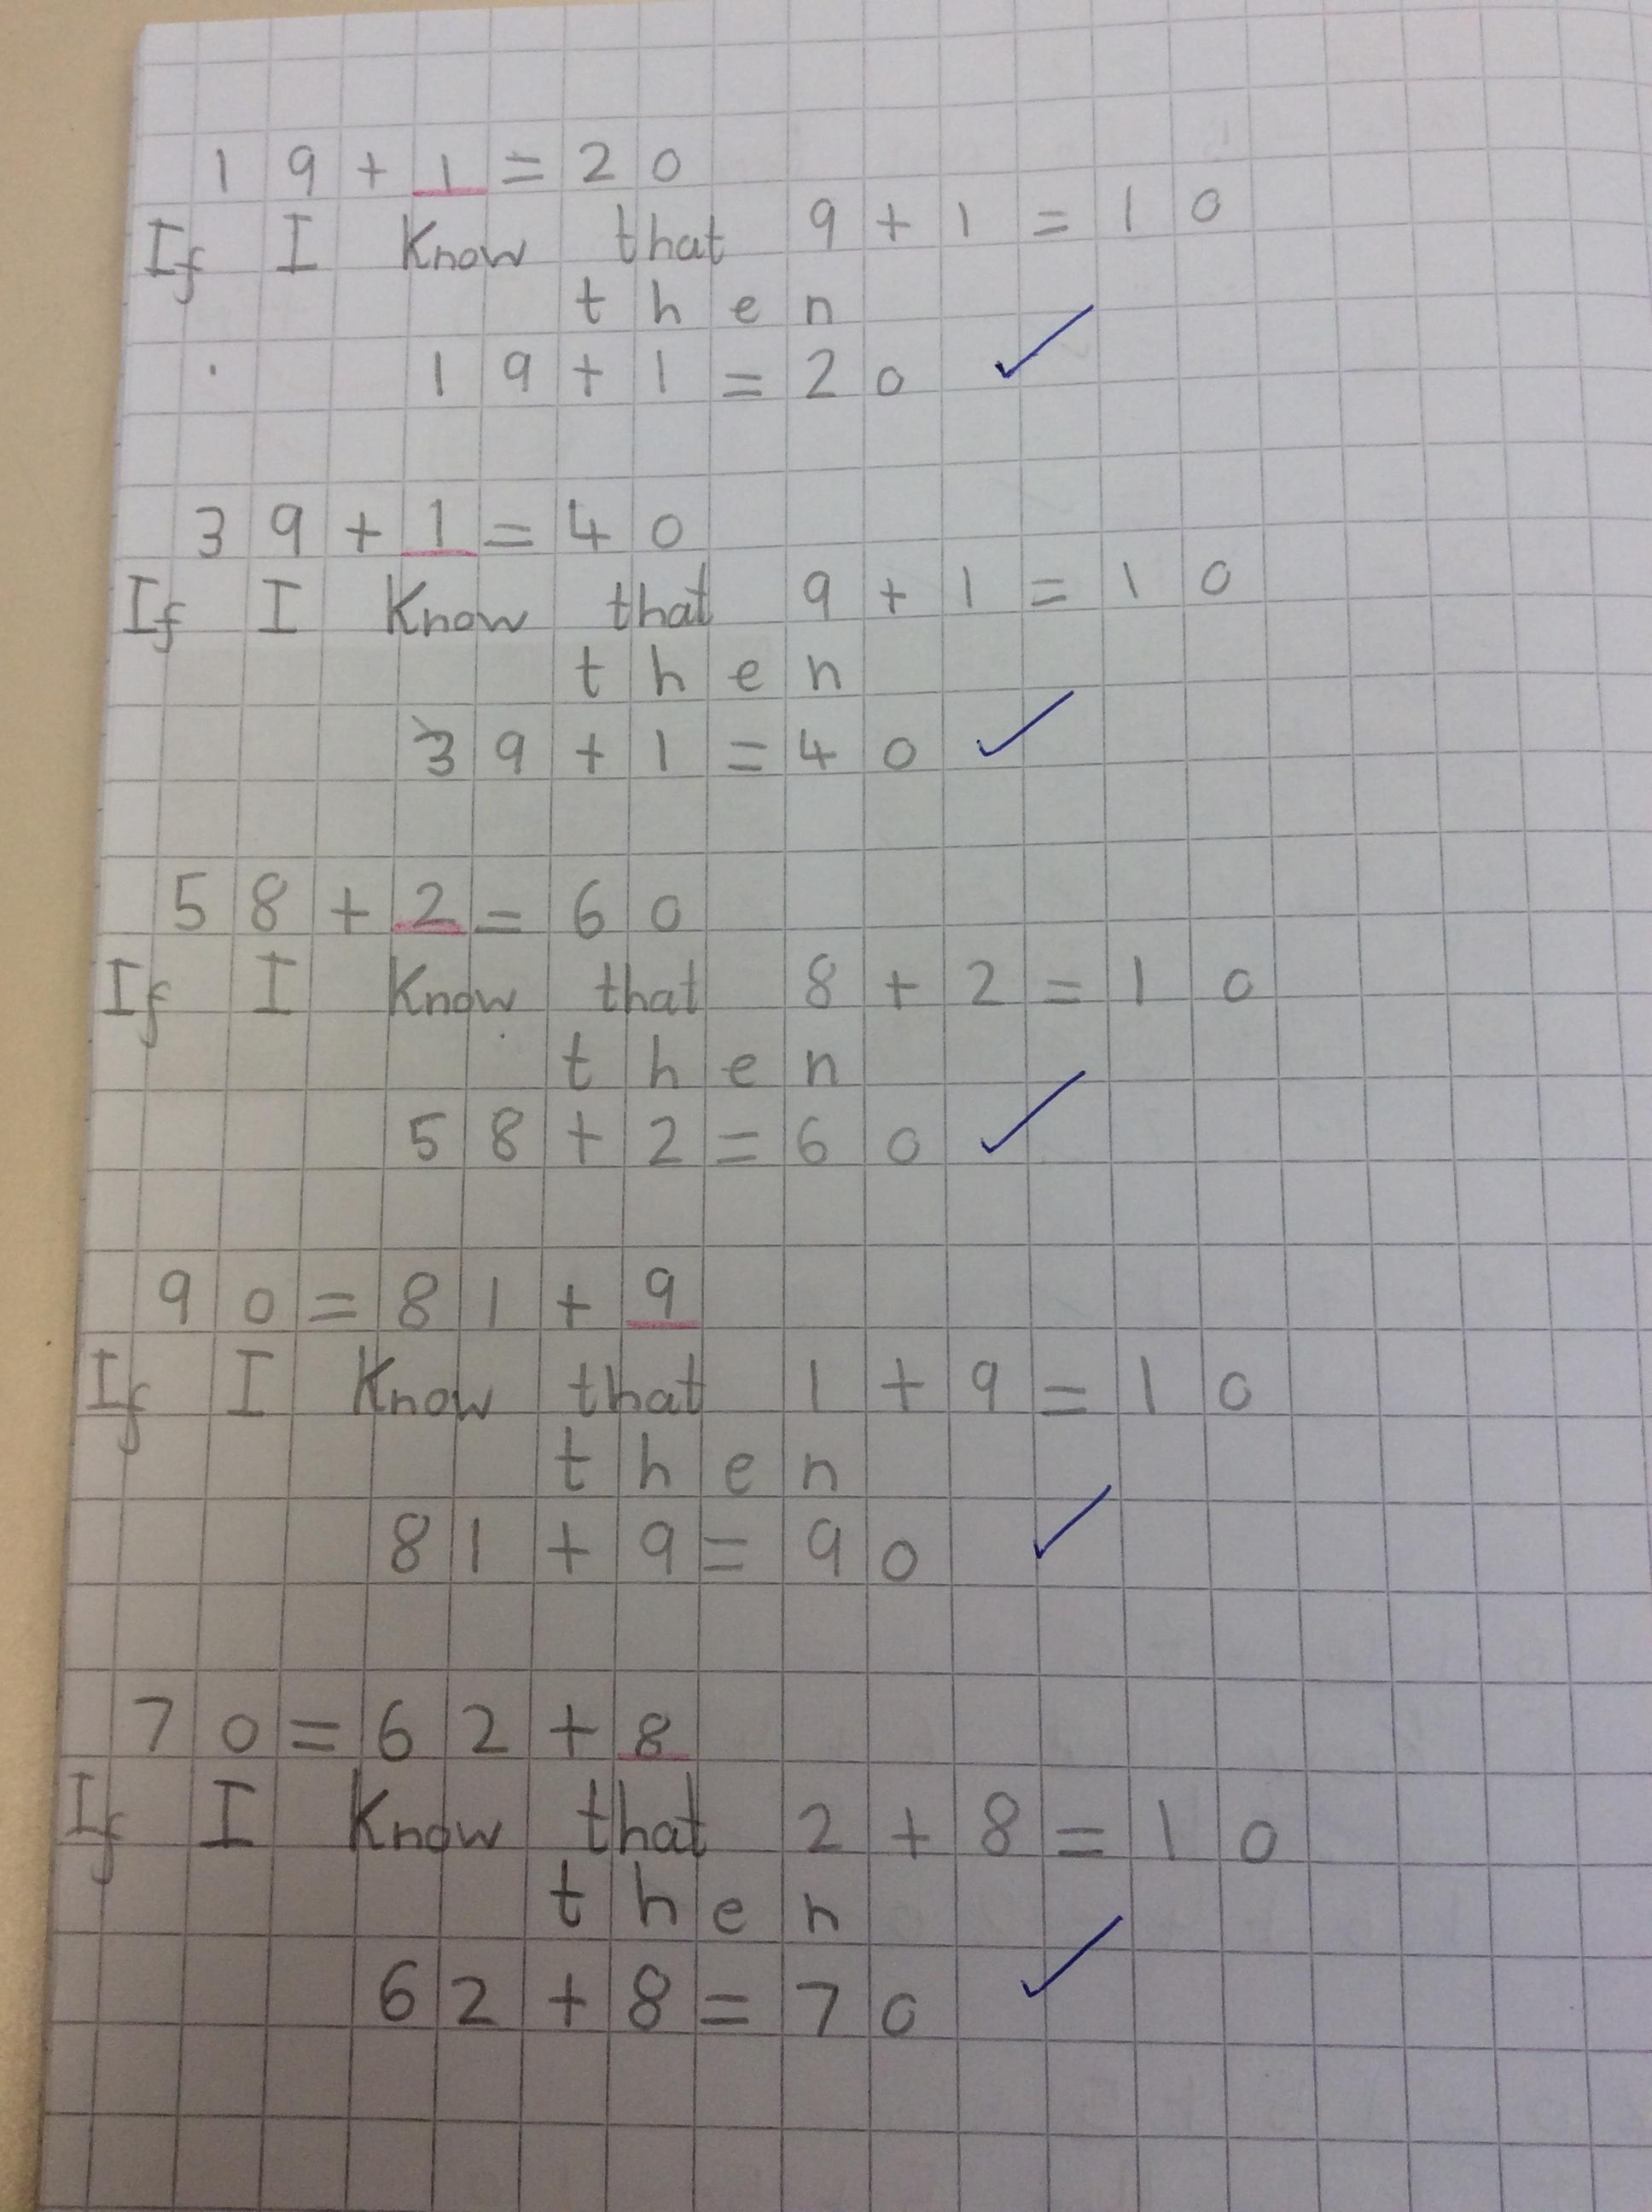 19+1=20
If I Know that 9+1=10
then
19+1=20
39+1=40
If I Know that 9+1=10
then
39+1=40
58+2=60
If I Know that 8+2=10
then
58+2=60
90=81+9
If I Know that 1+9=10
then
81+9=90
70=62+8
If I Know that 2+8=10
then
62+8=70